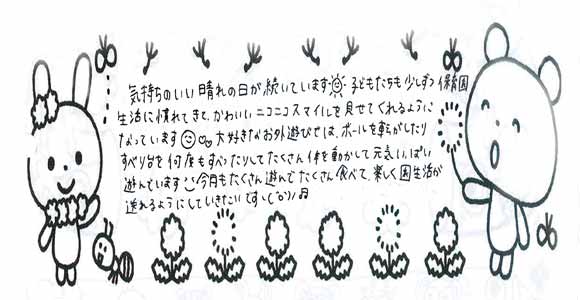 気持ちのいい晴れの日が続いています 子どもたちも少しずつ保育園
生活に慣れてきて、かわいいニコニコスマイルを見せてくれるように
なっています 大好きなお外遊びでは、ボールを転がしたり
すべり台を何度もすべったりしてたくさん体を動かして元気いっぱい
遊んでいます 今月もたくさん遊んでたくさん食べて、楽しく園生活が
送れるようにしていきたいですヽ(^o^)ノ♫